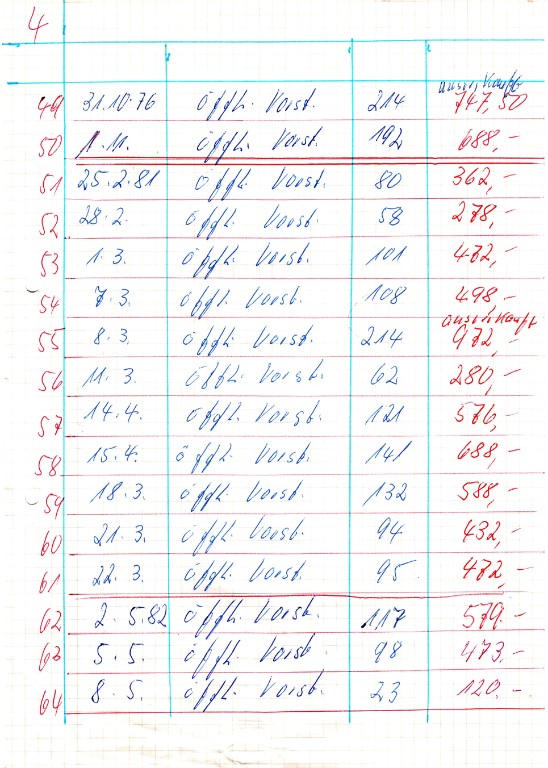 4
ausverkauft
49 31.10.76 öffh. Vorst. 214 747,50
50 1.11. öffh. Vorst. 192 688,-
51 25.2.81 öffh. Vorst. 80 362,-
52 28.2. öffh. Vorst. 58 278,-
53 1.3. öffh. Vorst. 101 472,-
54 7.3. öffh. Vorst. 108 498,-
ausverkauft
55 8.3. öffh. Vorst. 214 972,-
56 11.3. öffh. Vorst. 62 280,-
57 14.4. öffh. Vorst. 121 576,-
58 15.4. öffh. Vorst. 141 688,-
59 18.3. öffh. Vorst. 132 588,-
60 21.3. öffh. Vorst. 94 432,-
61 22.3. öffh. Vorst. 95 472,-
62 2.5.82 öffh. Vorst. 117 579.-
63 5.5. öffh. Vorst. 98 473.-
64 8.5. öffh. Vorst. 23 120.-